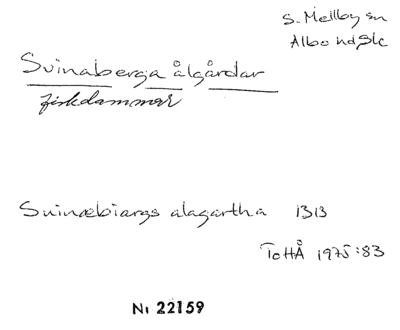 S. Mellby sn
Albo hd Slc
Svinaberga ålgårdar
fiskdammar
Suinæbiargs alagartha 1313
ToHÅ 1975:83
Nr 22159